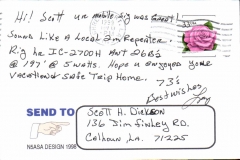 Hi! Scott ur mobile sig was Great
Sounds Like A Local 2m Repeater.
Rig hr IC-2700H Ant 26B's
@ 197' @ 5 watts. Hope u enjoyed your
Vacation & safe Trip Home.
73's
Best wishes
Jay
SEND TO
Scott H. Dickson
136 Jim Finley RD.
Calhoun, LA. 71225
N6ASA DESIGN 1998